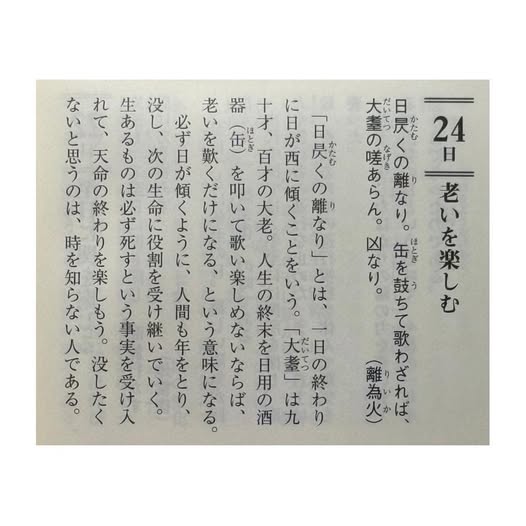 24日 老いを楽しむ
日昃くの離なり。缶を鼓ちて歌わざれば、
大耋の嗟あらん。凶なり。 (離為火)
「日昃くの離なり」とは、一日の終わり
に日が西に傾くことをいう。「大耋」は九
十才、百才の大老。人生の終末を日用の酒
器(缶)を叩いて歌い楽しめないならば、
老いを歎くだけになる、という意味になる。
必ず日が傾くように、人間も年をとり、
没し、次の生命に役割を受け継いでいく。
生あるものは必ず死すという事実を受け入
れて、天命の終わりを楽しもう。没したく
ないと思うのは、時を知らない人である。